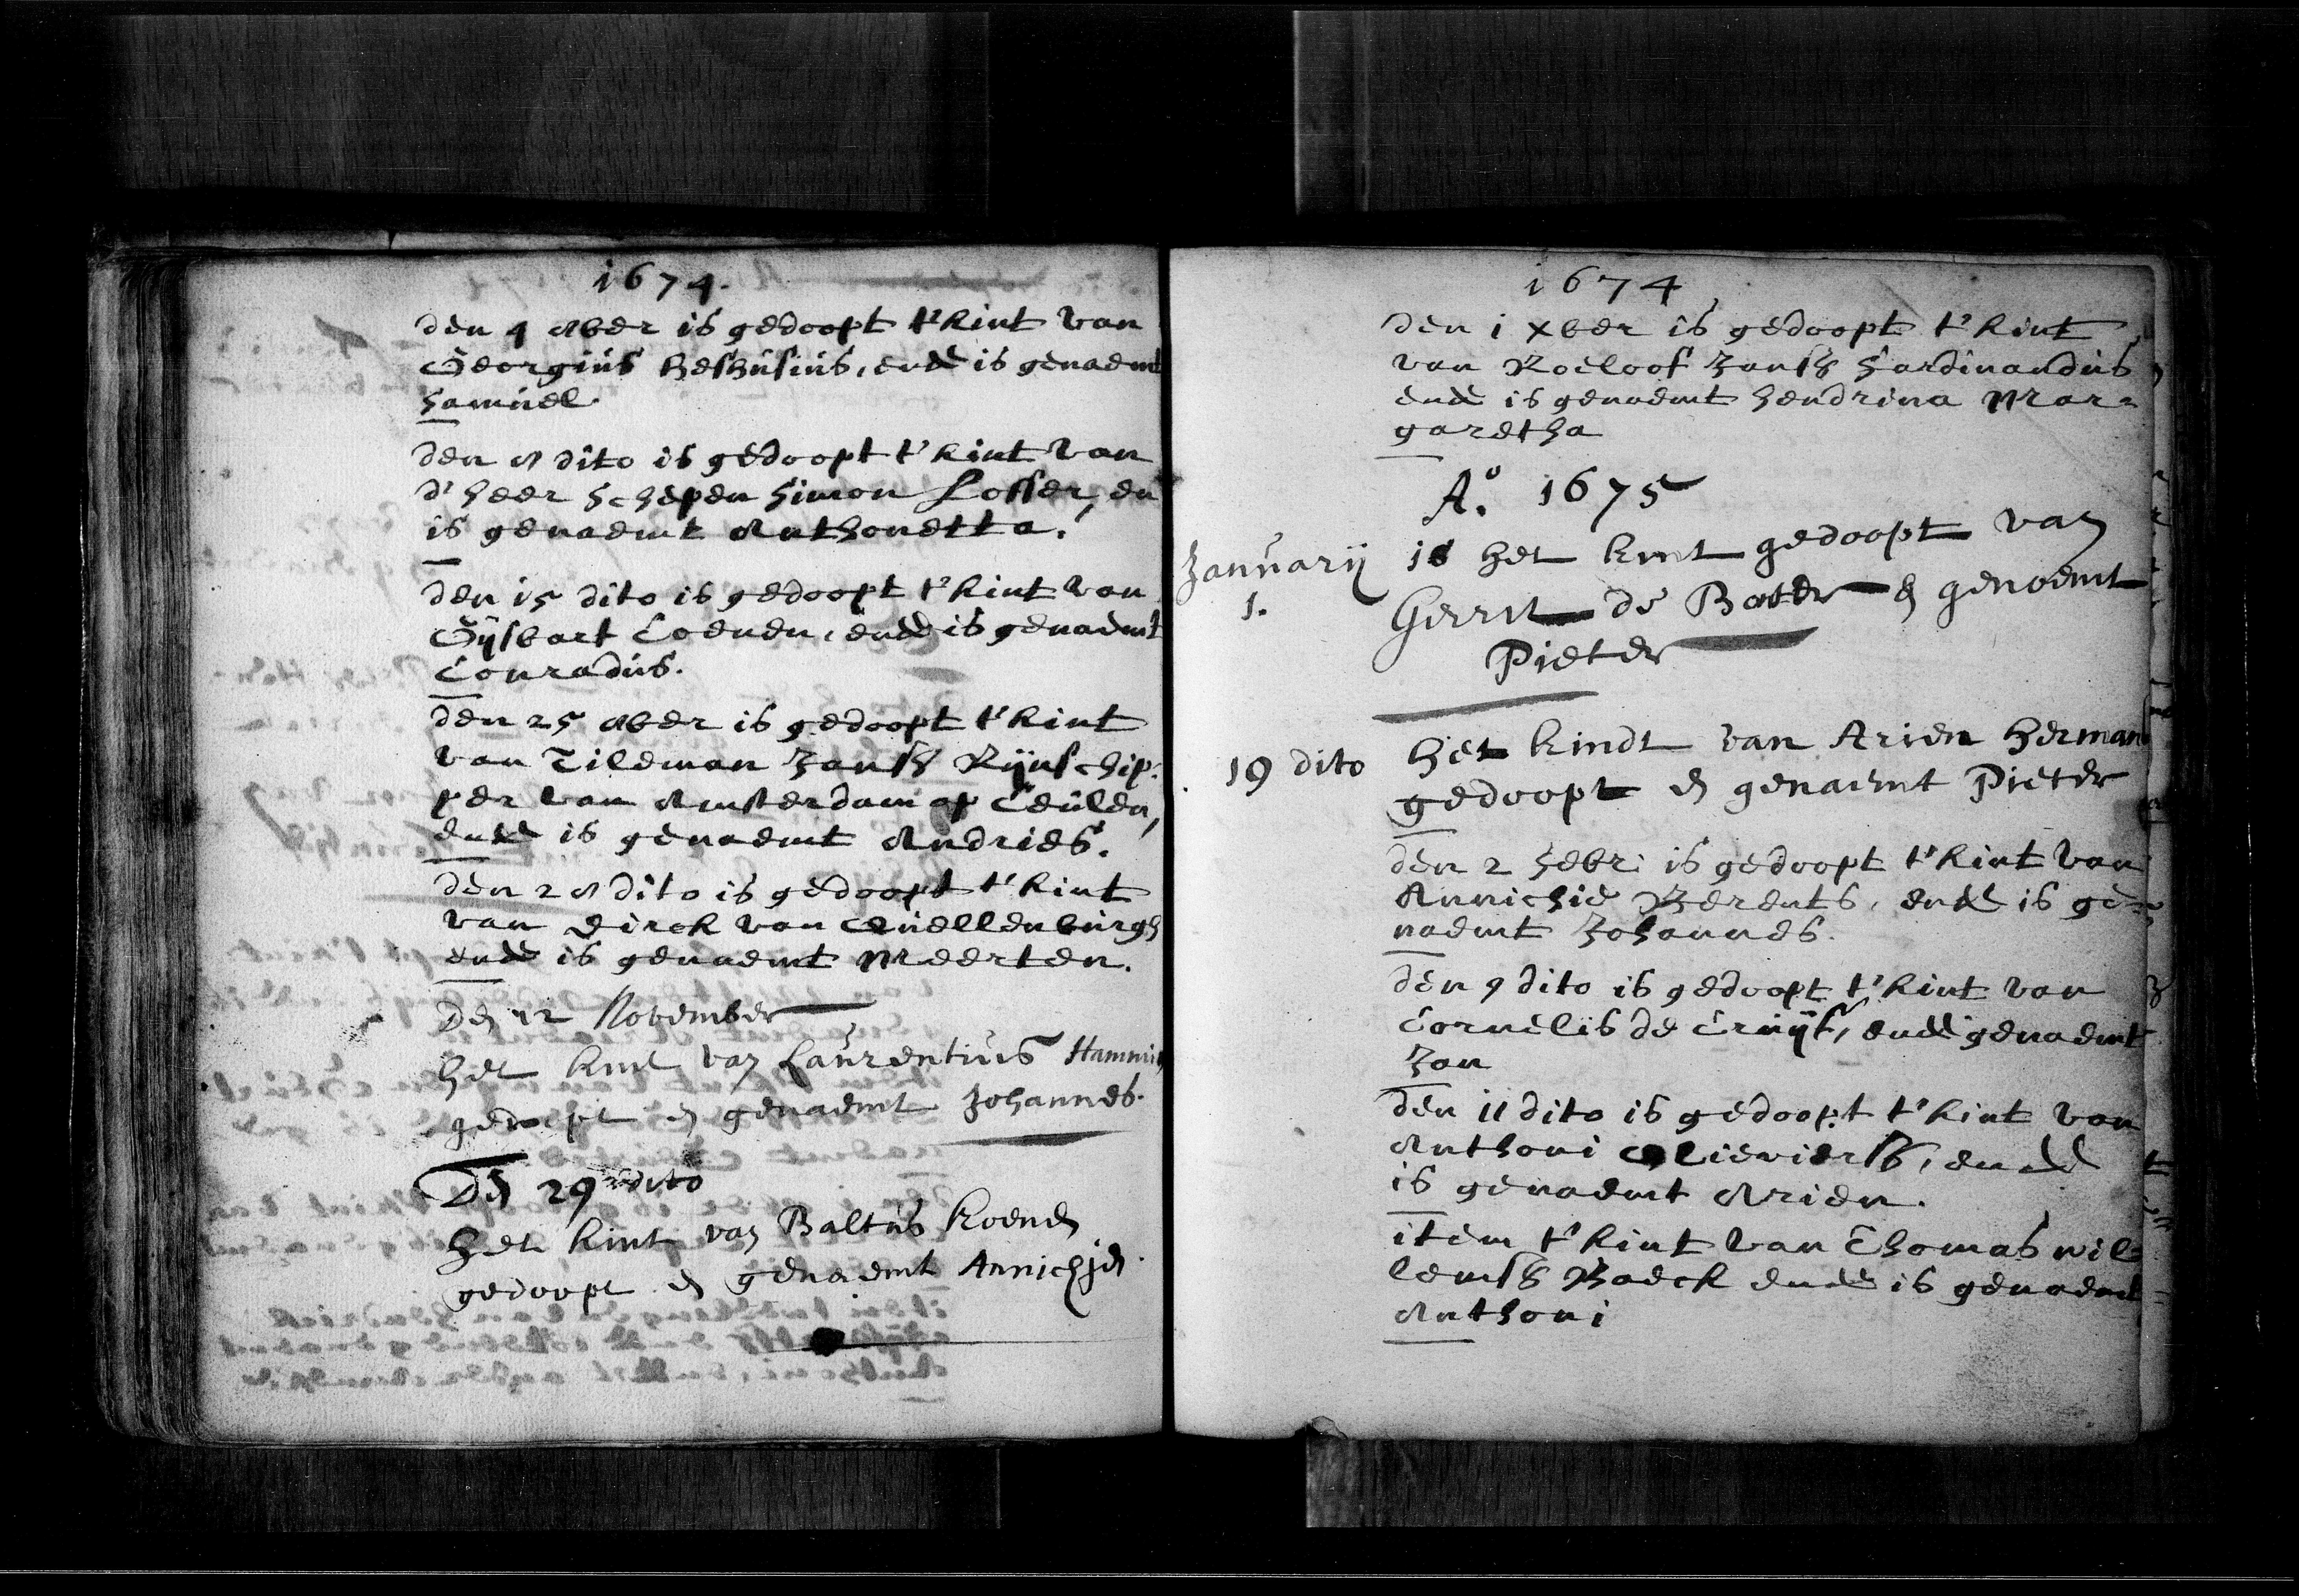 1674.
den 4 8ber is gedoopt t'kint van
Georgius Heshusius, ende is genaemt
Samuel.
den 8 dito is gedoopt t'kint van
d'heer Schepen Simon Losser, en
is genaemt Anthonetta.
den 15 dito is gedoopt t'kint van
Gijsbart Coenen, ende is genaemt
Conradus.
den 25 8ber is gedoopt t'kint
van Tileman Jansz Rijnschip-
per van Amsterdam op Ceulen,
ende is genaemt Andries.
den 28 dito is gedoopt t'kint
van Dirck van Quellenburgh
ende is genaemt Meerten.
Den 12 November
het kint van Laurentius
gedoopt en genaemt Johannes.
Den 29 dito
Het kint van Baltus Koenen
gedoopt en genaemt Annichjen.
1674
den 1 xber is gedoopt t'kint
van Roelof Jansz Fardinandus
ende is genaemt Hendrina Mar=
garetha
Ao. 1675
January is het kint gedoopt van
1. Gerrit de Bater en genoemt
Pieter
19 dito Het kindt van Arien Herman
gedoopt en genaemt Pieter
den 2 Febr: is gedoopt t'kint van
Annichie Berents, ende is ge=
naemt Johannes.
den 9 dito is gedoopt t'kint van
Cornelis de Cruijf, ende genaemt
Jan
den 11 dito is gedoopt t'kint van
Anthoni Olieviersz, ende
is genaemt Arien.
item t'kint van Thomas Wil=
lemsz Baeck ende is genaemt
Anthoni